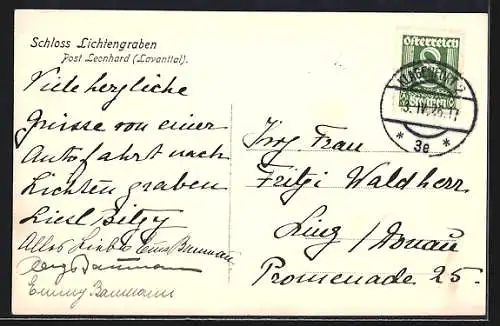 Schloss Lichtengraben
Post Leonhard (Lavanttal).
Österreich
8
Viele herzliche
Grüsse von einer
Autofahrt nach
Lichtengraben
Liesl
Alles Liebe Baumann
Baumann
Emmy Baumann
KLAGENFURT 2
* 3e *
Frau
Fritzi Waldherr
Linz / Donau
Promenade 25.